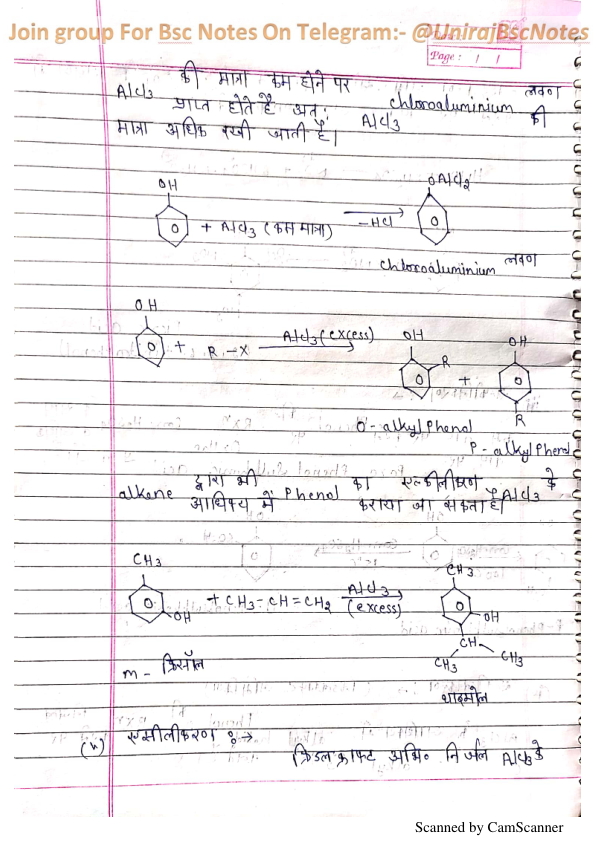 Join group For Bsc Notes On Telegram:- @UnirajBscNotes
Page :
AlCl3 की मात्रा कम होने पर chloroaluminium लवण
प्राप्त होते है अतः AlCl3 की
मात्रा अधिक रखी जाती है।
OH OAlCl2
+ AlCl3 (कम मात्रा) -HCl
chloroaluminium लवण
OH
+ R-X AlCl3 (excess) OH R + OH R
O-alkyl Phenol
P-alkyl Phenol
alkene द्वारा भी Phenol का एल्कीलीकरण AlCl3 के
आधिक्य में कराया जा सकता है।
CH3 CH3
OH + CH3-CH=CH2 AlCl3 (excess) OH
CH
CH3 CH3
m- क्रिसॉल
थाइमोल
एसीलीकरण :→
फ्रिडल क्राफ्ट अभि० निर्जल AlCl3 के
Scanned by CamScanner